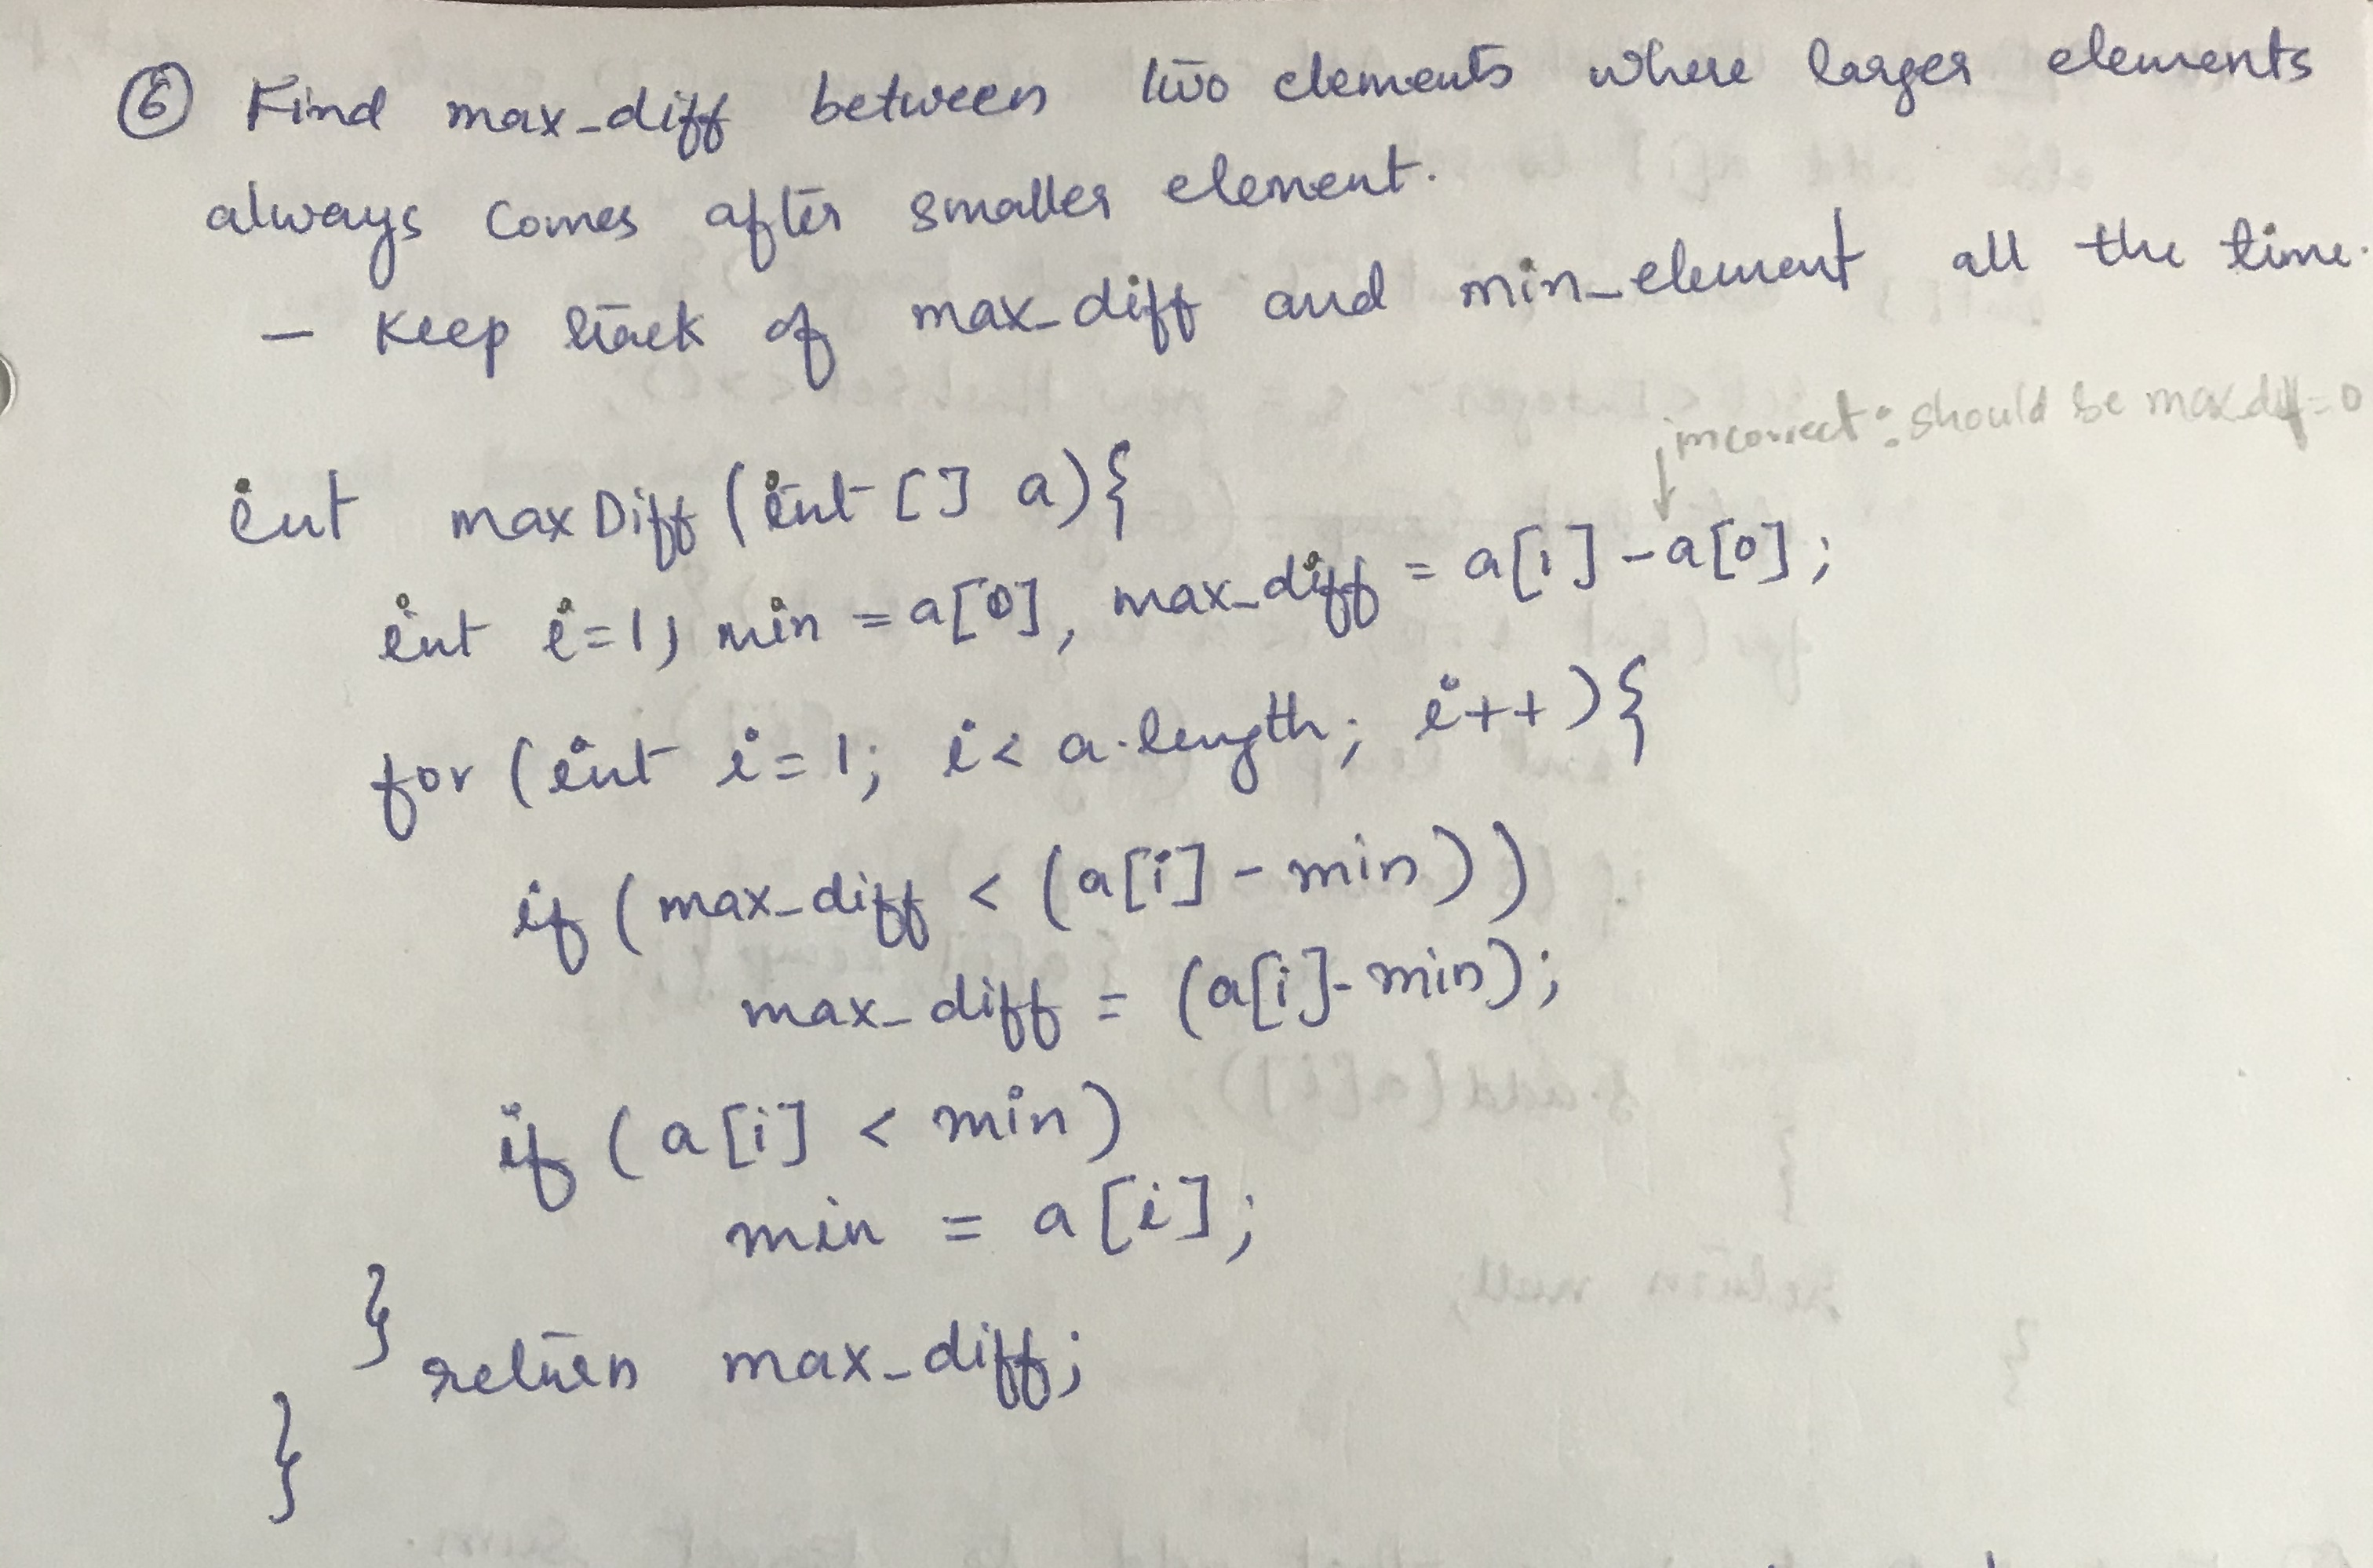 ⑥ Find max_diff between two elements where larger elements
always comes after smaller element.
— Keep track of max_diff and min_element all the time.
incorrect: should be max diff=0
int maxDiff (int [] a){
int i=1, min = a[0], max_diff = a[1] - a[0];
for (int i=1; i< a.length; i++){
if (max_diff < (a[i] - min))
max_diff = (a[i]-min);
if (a[i] < min)
min = a[i];
}
return max_diff;
}